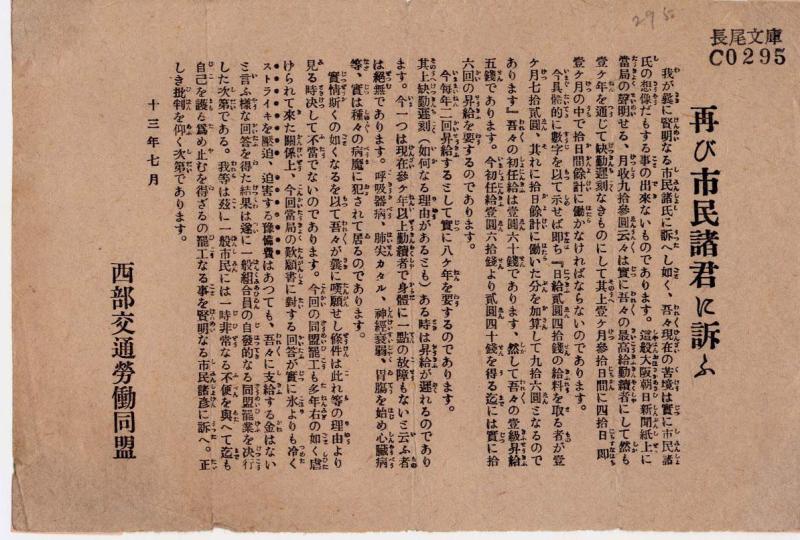 295
長尾文庫
C0295
再び市民諸君に訴ふ
我が曩に賢明なる市民諸氏に訴へし如く、吾々現在の苦境は實に市民諸
氏の想像だもする事の出來ないものであります。這般大阪朝日新聞紙上に
當局の聲明せる、月收九拾參圓云々は實に吾々の最高給勤續者にして然も
壹ケ年を通じて缺勤遲刻なきものにして其上壹ケ月參拾日間に四拾日即
壹ケ月の中で拾日間餘計に働かなければならないのであります。
今具體的に數字を以て示せば即ち『日給貳圓四拾錢の給料を取る者が壹
ケ月七拾貳圓、其れに拾日餘計に働いた分を加算して九拾六圓となるので
あります』吾々の初任給は壹圓六十錢であります、然して吾々の壹級昇給
五錢であります。今初任給壹圓六拾錢より貳圓四十錢を得る迄には實に拾
六回の昇給を要するのであります。
今毎年二回昇給するとして實に八ケ年を要するのであります。
其上缺勤遲刻(如何なる理由があるとも)ある時は昇給が遲れるのであり
ます。今一つは現在參ケ年以上勤續者で身體に一點の故障もないと云ふ者
は絕無であります。呼吸器病、肺尖カタル、神經衰弱、胃膓を始め心臟病
等、實は種々の病魔に犯されて居るのであります。
實情斯くの如くなるを以て吾々が曩に嘆願せし條件は此れ等の理由より
見る時決して不當でないのであります。今回の同盟罷工も多年右の如く虐
けられて來た關係上、今回當局の歎願書に對する回答が實に氷よりも冷く
ストライキを壓迫、迫害する豫備費はあつても、吾々に支給する金はない
と言ふ樣な回答を得た結果は遂に一般組合員の自發的なる同盟罷業を決行
した次第である。我等は茲に一般市民には一時非常なる不便を與へて迄も
自己を護る爲め止むを得ざるの罷工なる事を賢明なる市民諸彥に訴へ。正
しき批判を仰く次第であります。
十三年七月
西部交通勞働同盟